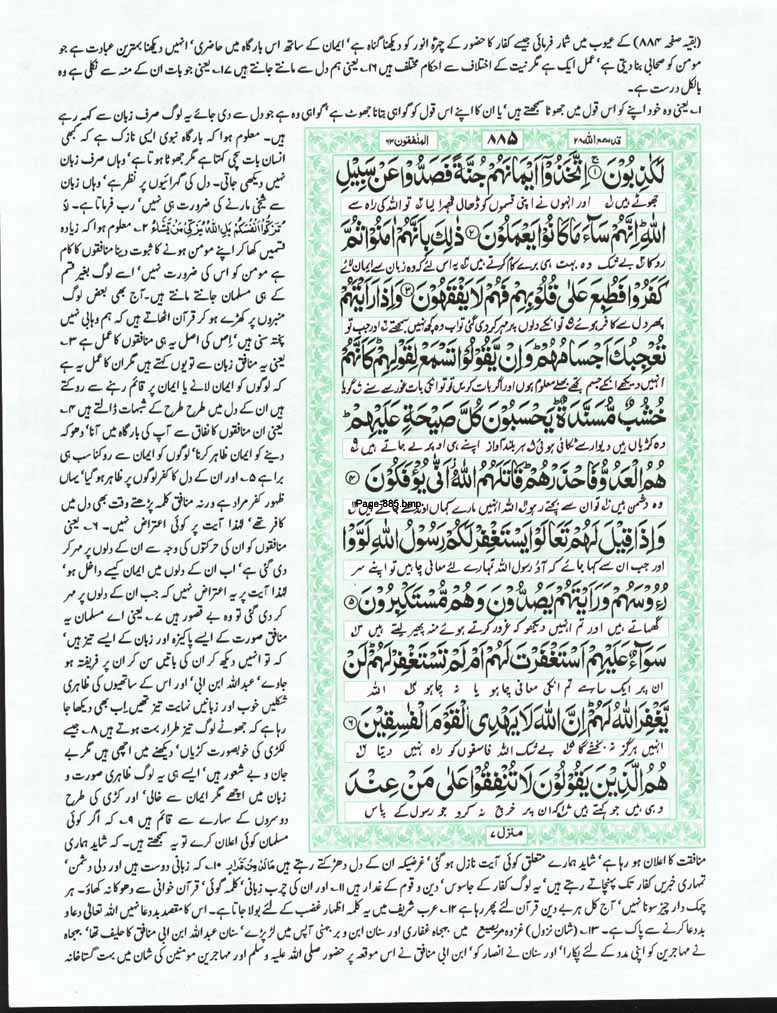 (بقیہ صفحہ ۸۸۴) کے عیوب میں شمار فرمائی جیسے کفار کا حضور کے چہرۂ انور کو دیکھنا گناہ ہے' ایمان کے ساتھ اس بارگاہ میں حاضری' انہیں دیکھنا بہترین عبادت ہے جو
مومن کو صحابی بنا دیتی ہے' عمل ایک ہے مگر نیت کے اختلاف سے احکام مختلف ہیں ۱۶۔ یعنی ہم دل سے مانتے جانتے ہیں ۱۷۔ یعنی جو بات ان کے منہ سے نکلی ہے وہ
بالکل درست ہے۔
۱۔ یعنی وہ خود اپنے کو اس قول میں جھوٹا سمجھتے ہیں' یا ان کا اپنے اس قول کو گواہی بتانا جھوٹ ہے' گواہی وہ ہے جو دل سے دی جائے یہ لوگ صرف زبان سے کہہ رہے
قد سمع اللہ ۲۸
۸۸۵
المنٰفقون ۶۳
لَكٰذِبُوْنَ ۚ﴿۱﴾ اِتَّخَذُوْۤا اَیْمَانَهُمْ جُنَّةً فَصَدُّوْا عَنْ سَبِیْلِ
جھوٹے ہیں اور انہوں نے اپنی قسموں کو ڈھال ٹھہرا لیا تو اللہ کی راہ سے
اللّٰهِ ؕ اِنَّهُمْ سَآءَ مَا كَانُوْا یَعْمَلُوْنَ ﴿۲﴾ ذٰلِكَ بِاَنَّهُمْ اٰمَنُوْا ثُمَّ
روکا بے شک وہ بہت ہی برے کام کرتے ہیں یہ اس لئے کہ وہ زبان سے ایمان لائے
كَفَرُوْا فَطُبِعَ عَلٰی قُلُوْبِهِمْ فَهُمْ لَا یَفْقَهُوْنَ ﴿۳﴾ وَ اِذَا رَاَیْتَهُمْ
پھر دل سے کافر ہوئے تو انکے دلوں پر مہر کر دی گئی تو اب وہ کچھ نہیں سمجھتے اور جب تو
تُعْجِبُكَ اَجْسَامُهُمْ ؕ وَ اِنْ یَّقُوْلُوْا تَسْمَعْ لِقَوْلِهِمْ ؕ كَاَنَّهُمْ
انہیں دیکھے انکے جسم تجھے بھلے معلوم ہوں اور اگر بات کریں تو تو انکی بات غور سے سنے گویا
خُشُبٌ مُّسَنَّدَةٌ ؕ یَحْسَبُوْنَ كُلَّ صَیْحَةٍ عَلَیْهِمْ ؕ
وہ کڑیاں ہیں دیوار سے ٹکائی ہوئی ہر بلند آواز اپنے ہی اوپر لے جاتے ہیں
هُمُ الْعَدُوُّ فَاحْذَرْهُمْ ؕ قَاتَلَهُمُ اللّٰهُ ؗ اَنّٰی یُؤْفَكُوْنَ ﴿۴﴾
Page-885.bmp
وہ دشمن ہیں تو ان سے بچتے رہو اللہ انہیں مارے کہاں اوندھے جاتے ہیں
وَ اِذَا قِیْلَ لَهُمْ تَعَالَوْا یَسْتَغْفِرْ لَكُمْ رَسُوْلُ اللّٰهِ لَوَّوْا
اور جب ان سے کہا جائے کہ آؤ رسول اللہ تمہارے لئے معافی چاہیں تو اپنے سر
رُءُوْسَهُمْ وَ رَاَیْتَهُمْ یَصُدُّوْنَ وَ هُمْ مُّسْتَكْبِرُوْنَ ﴿۵﴾
گھماتے ہیں اور تم انہیں دیکھو کہ غرور کرتے ہوئے منہ پھیر لیتے ہیں
سَوَآءٌ عَلَیْهِمْ اَسْتَغْفَرْتَ لَهُمْ اَمْ لَمْ تَسْتَغْفِرْ لَهُمْ ؕ لَنْ
ان پر ایک سا ہے تم انکی معافی چاہو یا نہ چاہو اللہ
یَّغْفِرَ اللّٰهُ لَهُمْ ؕ اِنَّ اللّٰهَ لَا یَهْدِی الْقَوْمَ الْفٰسِقِیْنَ ﴿۶﴾
انہیں ہرگز نہ بخشے گا بے شک اللہ فاسقوں کو راہ نہیں دیتا
هُمُ الَّذِیْنَ یَقُوْلُوْنَ لَا تُنْفِقُوْا عَلٰی مَنْ عِنْدَ
وہی ہیں جو کہتے ہیں کہ ان پر خرچ نہ کرو جو رسول کے پاس
منزل ۷
ہیں۔ معلوم ہوا کہ بارگاہ نبوی ایسی نازک ہے کہ کبھی
انسان بات سچی کہتا ہے مگر جھوٹا ہوتا ہے' وہاں صرف زبان
نہیں دیکھی جاتی۔ دل کی گہرائیوں پر نظر ہے' وہاں زبان
سے شیخی مارنے کی ضرورت ہی نہیں' رب فرماتا ہے۔ لَا
تُزَكُّوْۤا اَنْفُسَكُمْ بَلِ اللّٰهُ یُزَكِّیْ مَنْ یَّشَآءُ ۲۔ معلوم ہوا کہ زیادہ
قسمیں کھا کر اپنے مومن ہونے کا ثبوت دینا منافقوں کا کام
ہے مومن کو اس کی ضرورت نہیں' اسے لوگ بغیر قسم
کے ہی مسلمان جانتے مانتے ہیں۔ آج بھی بعض لوگ
منبروں پر کھڑے ہو کر قرآن اٹھاتے ہیں کہ ہم وہابی نہیں
پختہ سنی ہیں' اس کی اصل یہ ہی منافقوں کا عمل ہے ۳۔
یعنی یہ منافق زبان سے تو یوں کہتے ہیں مگر ان کا عمل یہ ہے
کہ لوگوں کو ایمان لانے یا ایمان پر قائم رہنے سے روکتے
ہیں ان کے دل میں طرح طرح کے شبہات ڈالتے ہیں ۴۔
یعنی ان منافقوں کا نفاق سے آپ کی بارگاہ میں آنا' دھوکہ
دینے کو ایمان ظاہر کرنا' لوگوں کو ایمان سے روکنا سب ہی
برا ہے ۵۔ اور ان کے دل کا کفر لوگوں پر ظاہر ہو گیا' یہاں
ظہور کفر مراد ہے ورنہ منافق کلمہ پڑھتے وقت بھی دل میں
کافر تھے' لہٰذا آیت پر کوئی اعتراض نہیں۔ ۶۔ یعنی
منافقوں کو ان کی حرکتوں کی وجہ سے ان کے دلوں پر مہر کر
دی گئی ہے' اب ان کے دلوں میں ایمان کیسے داخل ہو'
لہٰذا آیت پر یہ اعتراض نہیں کہ جب ان کے دلوں پر مہر
کر دی گئی تو وہ بے قصور ہیں ۷۔ یعنی اے مسلمان یہ
منافق صورت کے ایسے پاکیزہ اور زبان کے ایسے تیز ہیں'
کہ تو انہیں دیکھ کر ان کی باتیں سن کر ان پر فریفتہ ہو
جاوے' عبداللہ ابن ابی' اور اس کے ساتھیوں کی ظاہری
شکلیں خوب اور زبانیں نہایت تیز تھیں۔ اب بھی دیکھا جا
رہا ہے کہ جھوٹے لوگ تیز طرار بہت ہوتے ہیں ۸۔ جیسے
لکڑی کی خوبصورت کڑیاں' دیکھنے میں اچھی ہیں مگر بے
جان و بے شعور ہیں' ایسے ہی یہ لوگ ظاہری صورت و
زبان میں اچھے مگر ایمان سے خالی' اور کڑی کی طرح
دوسروں کے سہارے سے قائم ہیں ۹۔ کہ اگر کوئی
مسلمان کوئی اعلان کرے تو یہ سمجھتے ہیں۔ کہ شاید ہماری
منافقت کا اعلان ہو رہا ہے' شاید ہمارے متعلق کوئی آیت نازل ہو گئی' غرضیکہ ان کے دل دھڑکتے رہتے ہیں ۱۰۔ کہ زبانی دوست ہیں اور دلی دشمن'
تمہاری خبریں کفار تک پہنچاتے رہتے ہیں' یہ لوگ کفار کے جاسوس' دین و قوم کے غدار ہیں ۱۱۔ اور ان کی چرب زبانی' کلمہ گوئی' قرآن خوانی سے دھوکا نہ کھاؤ۔ ہر
چمک دار چیز سونا نہیں' آج کل ہر بے دین قرآن لئے پھر رہا ہے ۱۲۔ عرب شریف میں یہ کلمہ اظہار غضب کے لئے بولا جاتا ہے۔ اس کا مقصد بددعا نہیں اللہ تعالیٰ دعا و
بددعا کرنے سے پاک ہے۔ ۱۳۔ (شان نزول) غزوہ مریسیع میں جہجاہ غفاری اور سنان ابن وبر جہنی آپس میں لڑ پڑے' سنان عبداللہ ابن ابی منافق کا حلیف تھا' جہجاہ
نے مہاجرین کو اپنی مدد کے لئے پکارا' اور سنان نے انصار کو' ابن ابی منافق نے اس موقعہ پر حضور صلی اللہ علیہ وسلم اور مہاجرین مومنین کی شان میں بہت گستاخانہ